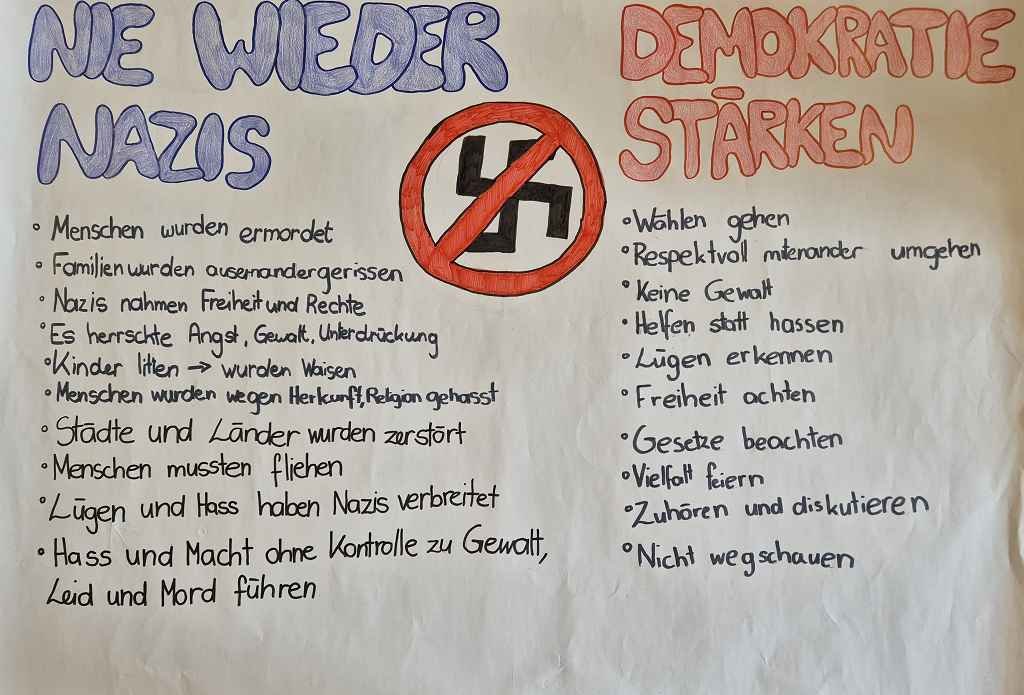 NIE WIEDER
NAZIS
° Menschen wurden ermordet
° Familien wurden auseinandergerissen
° Nazis nahmen Freiheit und Rechte
° Es herrschte Angst, Gewalt, Unterdrückung
° Kinder litten → wurden Waisen
° Menschen wurden wegen Herkunft, Religion gehasst
° Städte und Länder wurden zerstört
° Menschen mussten fliehen
° Lügen und Hass haben Nazis verbreitet
° Hass und Macht ohne Kontrolle zu Gewalt,
Leid und Mord führen
DEMOKRATIE
STÄRKEN
° Wählen gehen
° Respektvoll miteinander umgehen
° Keine Gewalt
° Helfen statt hassen
° Lügen erkennen
° Freiheit achten
° Gesetze beachten
° Vielfalt feiern
° Zuhören und diskutieren
° Nicht wegschauen